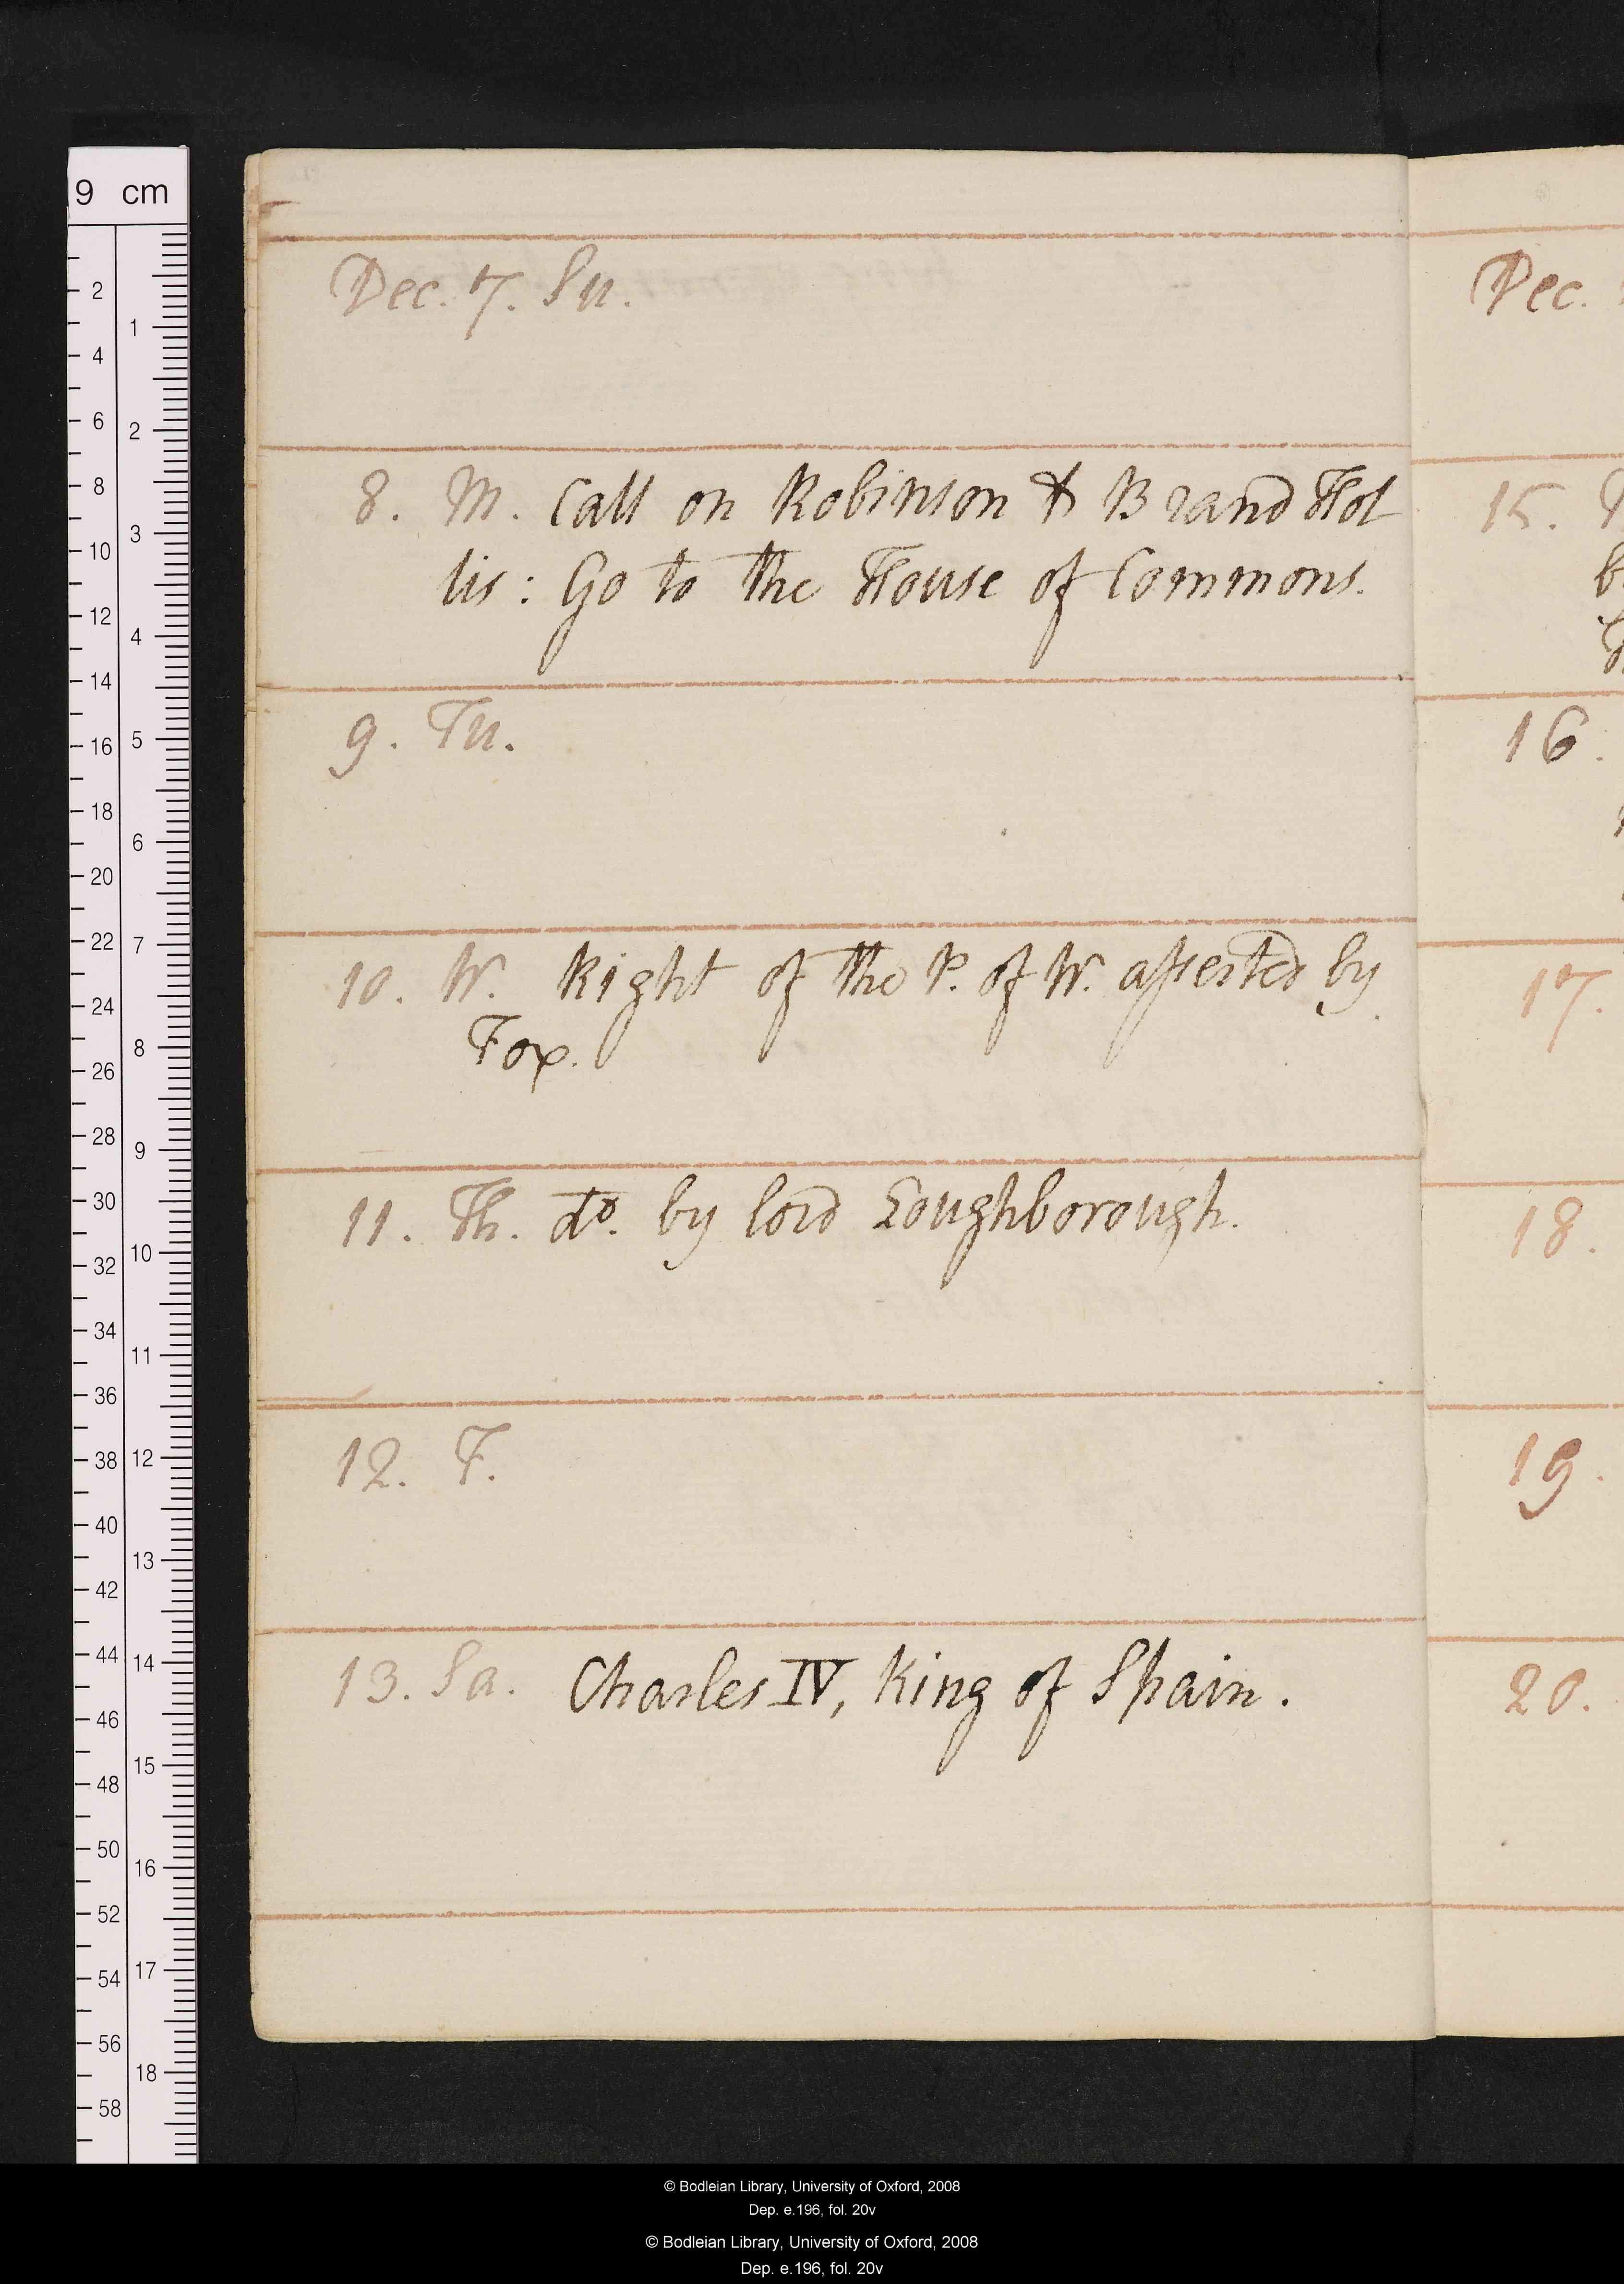 Dec. 7. Su.
8. M. Call on Robinson & Brand Hol
lis: Go to the House of Commons.
9. Tu.
10. W. Right of the P. of W. asserted by
Fox.
11. Th. do. by lord Loughborough.
12. F.
13. Sa. Charles IV, King of Spain.
Dec.
15.
16.
17.
18.
19.
20.
9 cm
2
4
6
8
10
12
14
16
18
20
22
24
26
28
30
32
34
36
38
40
42
44
46
48
50
52
54
56
58
1
2
3
4
5
6
7
8
9
10
11
12
13
14
15
16
17
18
© Bodleian Library, University of Oxford, 2008
Dep. e.196, fol. 20v
© Bodleian Library, University of Oxford, 2008
Dep. e.196, fol. 20v